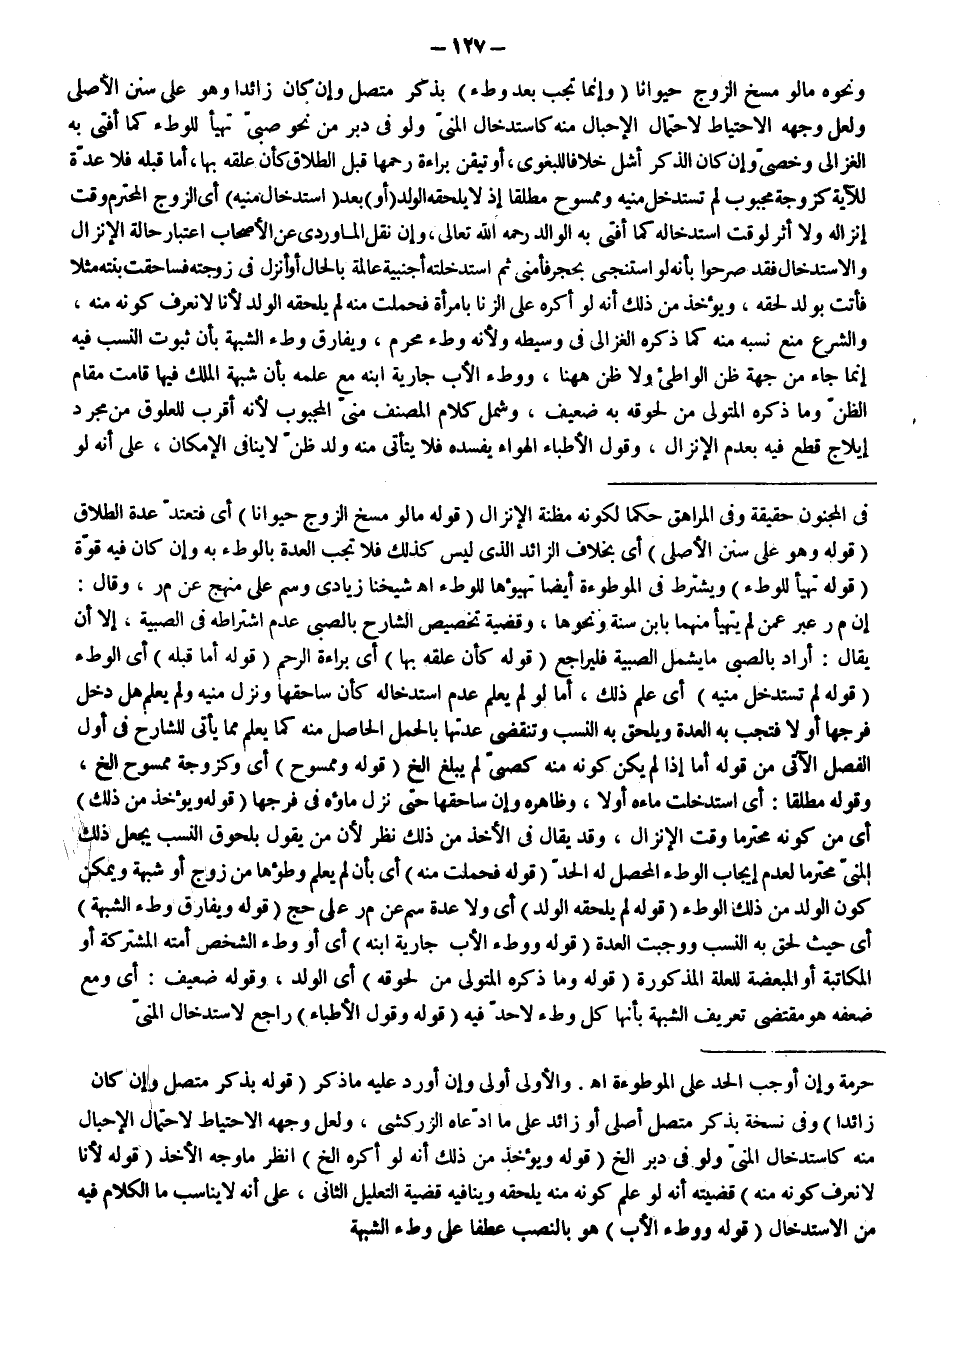 – ١٢٧ –
ونحوه مالو مسخ الزوج حيوانا ( وإنما تجب بعد وطء ) بذكر متصل وإن كان زائدا وهو على سنن الأصلى
ولعل وجهه الاحتياط لاحتمال الإحبال منه كاستدخال المنىّ ولو فى دبر من نحو صبىّ تهيأ للوطء كما أفتى به
الغزالى وخصىّ وإن كان الذكر أشل خلافا للبغوى ، أو تيقن براءة رحمها قبل الطلاق كأن علقه بها ، أما قبله فلا عدّة
للآية كزوجة مجبوب لم تستدخل منيه وممسوح مطلقا إذ لا يلحقه الولد (أو) بعد ( استدخال منيه) أى الزوج المحترم وقت
إنزاله ولا أثر لوقت استدخاله كما أفتى به الوالد رحمه الله تعالى ، وإن نقل الماوردى عن الأصحاب اعتبار حالة الإنزال
والاستدخال فقد صرحوا بأنه لو استنجى بحجر فأمنى ثم استدخلته أجنبية عالمة بالحال أو أنزل فى زوجته فساحقت بنته مثلا
فأتت بولد لحقه ، ويؤخذ من ذلك أنه لو أكره على الزنا بامرأة فحملت منه لم يلحقه الولد لأنا لانعرف كونه منه ،
والشرع منع نسبه منه كما ذكره الغزالى فى وسيطه ولأنه وطء محرم ، ويفارق وطء الشبهة بأن ثبوت النسب فيه
إنما جاء من جهة ظن الواطئ ولا ظن ههنا ، ووطء الأب جارية ابنه مع علمه بأن شبهة الملك فيها قامت مقام
الظنّ وما ذكره المتولى من لحوقه به ضعيف ، وشمل كلام المصنف منىّ المجبوب لأنه أقرب للعلوق من مجرد
إيلاج قطع فيه بعدم الإنزال ، وقول الأطباء الهواء يفسده فلا يتأتى منه ولد ظنّ لاينافى الإمكان ، على أنه لو
فى المجنون حقيقة وفى المراهق حكما لكونه مظنة الإنزال ( قوله مالو مسخ الزوج حيوانا ) أى فتعتدّ عدة الطلاق
( قوله وهو على سنن الأصلى ) أى بخلاف الزائد الذى ليس كذلك فلا تجب العدة بالوطء به وإن كان فيه قوّة
( قوله تهيأ للوطء ) ويشترط فى الموطوءة أيضا تهيؤها للوطء اه شيخنا زيادى وسم على منهج عن م ر ، وقال :
إن م ر عبر عمن لم يتهيأ منهما بابن سنة ونحوها ، وقضية تخصيص الشارح بالصبى عدم اشتراطه فى الصبية ، إلا أن
يقال : أراد بالصبى مايشمل الصبية فليراجع ( قوله كأن علقه بها ) أى براءة الرحم ( قوله أما قبله ) أى الوطء
( قوله لم تستدخل منيه ) أى علم ذلك ، أما لو لم يعلم عدم استدخاله كأن ساحقها ونزل منيه ولم يعلم هل دخل
فرجها أو لا فتجب به العدة ويلحق به النسب وتنقضى عدتها بالحمل الحاصل منه كما يعلم مما يأتى للشارح فى أول
الفصل الآتى من قوله أما إذا لم يكن كونه منه كصبىّ لم يبلغ الخ ( قوله وممسوح ) أى وكزوجة ممسوح الخ ،
وقوله مطلقا : أى استدخلت ماءه أولا ، وظاهره وإن ساحقها حتى نزل ماؤه فى فرجها ( قوله ويؤخذ من ذلك )
أى من كونه محترما وقت الإنزال ، وقد يقال فى الأخذ من ذلك نظر لأن من يقول بلحوق النسب يجعل ذلك
المنىّ محترما لعدم إيجاب الوطء المحصل له الحدّ ( قوله فحملت منه ) أى بأن لم يعلم وطؤها من زوج أو شبهة ويمكن
كون الولد من ذلك الوطء ( قوله لم يلحقه الولد ) أى ولا عدة سم عن م ر على حج ( قوله ويفارق وطء الشبهة )
أى حيث لحق به النسب ووجبت العدة ( قوله ووطء الأب جارية ابنه ) أى أو وطء الشخص أمته المشتركة أو
المكاتبة أو المبعضة للعلة المذكورة ( قوله وما ذكره المتولى من لحوقه ) أى الولد ، وقوله ضعيف : أى ومع
ضعفه هو مقتضى تعريف الشبهة بأنها كل وطء لاحدّ فيه ( قوله وقول الأطباء ) راجع لاستدخال المنىّ
حرمة وإن أوجب الحد على الموطوءة اه . والأولى أولى وإن أورد عليه ماذكر ( قوله بذكر متصل وإن كان
زائدا ) وفى نسخة بذكر متصل أصلى أو زائد على ما ادّعاه الزركشى ، ولعل وجهه الاحتياط لاحتمال الإحبال
منه كاستدخال المنىّ ولو فى دبر الخ ( قوله ويؤخذ من ذلك أنه لو أكره الخ ) انظر ماوجه الأخذ ( قوله لأنا
لانعرف كونه منه ) قضيته أنه لو علم كونه منه يلحقه وينافيه قضية التعليل الثانى ، على أنه لايناسب ما الكلام فيه
من الاستدخال ( قوله ووطء الأب ) هو بالنصب عطفا على وطء الشبهة